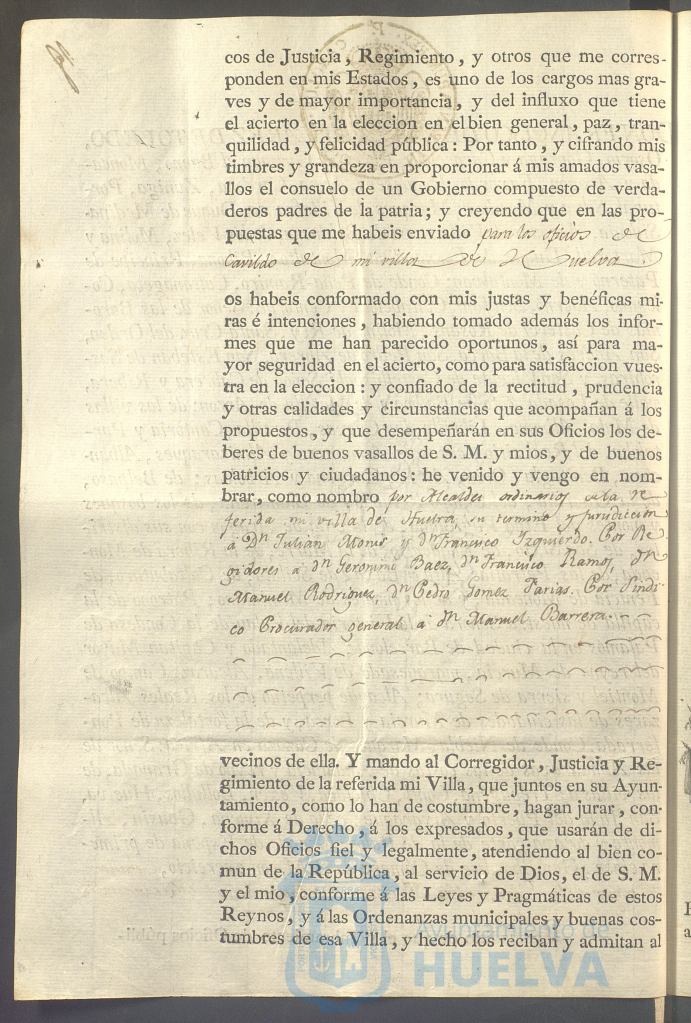 cos de Justicia, Regimiento, y otros que me corres-
ponden en mis Estados, es uno de los cargos mas gra-
ves y de mayor importancia, y del influxo que tiene
el acierto en la eleccion en el bien general, paz, tran-
quilidad, y felicidad pública: Por tanto, y cifrando mis
timbres y grandeza en proporcionar á mis amados vasa-
llos el consuelo de un Gobierno compuesto de verda-
deros padres de la patria; y creyendo que en las pro-
puestas que me habeis enviado para los oficios de
Cavildo de mi villa de Huelva
os habeis conformado con mis justas y benéficas mi-
ras é intenciones, habiendo tomado además los infor-
mes que me han parecido oportunos, así para ma-
yor seguridad en el acierto, como para satisfaccion vues-
tra en la eleccion: y confiado de la rectitud, prudencia
y otras calidades y circunstancias que acompañan á los
propuestos, y que desempeñarán en sus Oficios los de-
beres de buenos vasallos de S. M. y mios, y de buenos
patricios y ciudadanos: he venido y vengo en nom-
brar, como nombro por Alcaldes ordinarios de la re
ferida mi villa de Huelva, su termino y jurisdiccion
á Dn Julian Monis y dn Francisco Izquierdo. Por Re
gidores a dn Geronimo Baez, dn Francisco Ramos, dn
Manuel Rodriguez, dn Pedro Gomez Farias. Por Sindi
co Procurador general a dn Manuel Barrera.
vecinos de ella. Y mando al Corregidor, Justicia y Re-
gimiento de la referida mi Villa, que juntos en su Ayun-
tamiento, como lo han de costumbre, hagan jurar, con-
forme á Derecho, á los expresados, que usarán de di-
chos Oficios fiel y legalmente, atendiendo al bien co-
mun de la República, al servicio de Dios, el de S. M.
y el mio, conforme á las Leyes y Pragmáticas de estos
Reynos, y á las Ordenanzas municipales y buenas cos-
tumbres de esa Villa, y hecho los reciban y admitan al
Ayuntamiento de
HUELVA